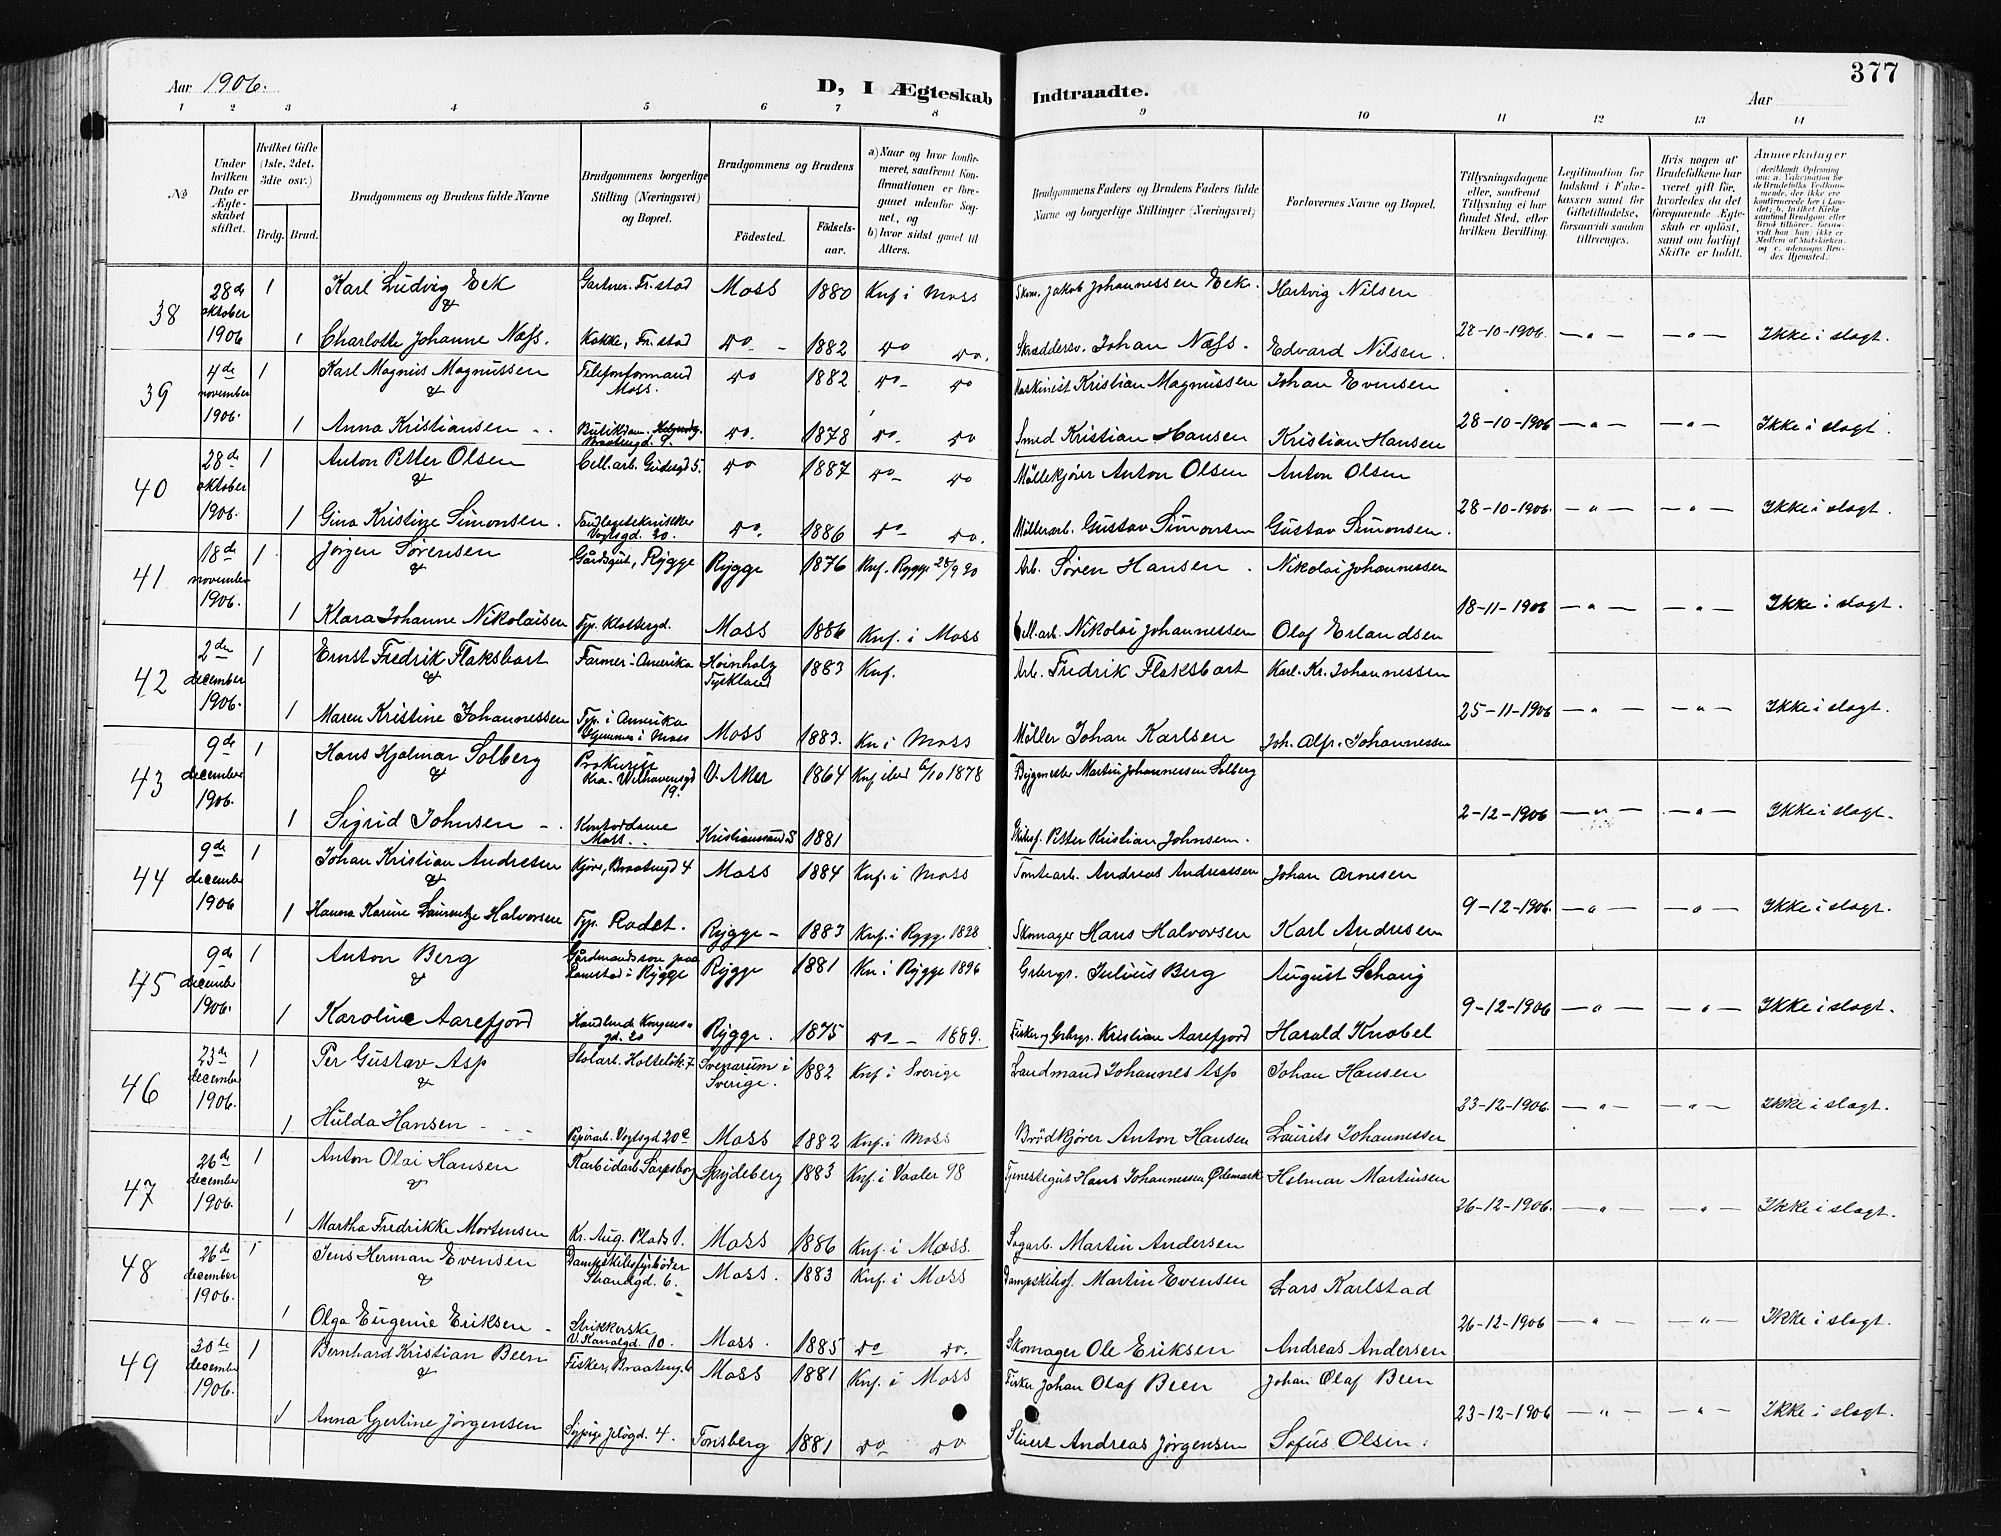 Aar 1906.
D, I Ægteskab Indtraadte.
Aar
377
1 2 3 4 5 6 7 8 9 10 11 12 13 14
No
Under hvilken Dato er Ægteskabet stiftet.
Hvilket Gifte (1ste, 2det, 3die osv.)
Brdg. Brud.
Brudgommens og Brudens fulde Navne
Brudgommens borgerlige Stilling (Næringsvei) og Bopæl.
Brudgommens og Brudens
Fødested. Fødselsaar.
a) Naar og hvor konfirmeret, saafremt Konfirmationen er foregaaet udenfor Sognet, og b) hvor sidst gaaet til Alters.
Brudgommens Faders og Brudens Faders fulde Navne og borgerlige Stillinger (Næringsvei)
Forlovernes Navne og Bopæl.
Tillysningsdagene eller, saafremt Tillysning ei har fundet Sted, efter hvilken Bevilling.
Legitimation for Indskud i Fakekassen samt for Giftetilladelse, forsaavidt saadan tiltrænges.
Hvis nogen af Brudefolkene har været gift før, hvorledes da det foregaaende Ægteskab er opløst, samt om lovligt Skifte er holdt.
Anmerkninger
38 28de oktober 1906 1 Karl Ludvig Eek Gartner. Fr.stad Moss 1880 Knf i Moss Skom. Jakob Johannessen Eek. Hartvig Nilsen
&
1 Charlotte Johanne Næss. Kokke, Fr.stad do - 1882 do do. Skræddersv. Johan Næss. Edvard Nilsen. 28-10-1906. — „ — — „ — Ikke i slægt.
39 4de november 1906. 1 Karl Magnus Magnussen Telefonformand Moss. do 1882 do- do Maskinist Kristian Magnussen Johan Evensen
&
1 Anna Kristiansen Butikdam. Braatengd. 9. do. 1878 do- do Smed Kristian Hansen Kristian Hansen 28-10-1906 — „ — — „ — Ikke i slagt.
40 28de oktober 1906. 1 Anton Petter Olsen Cell.arb. Gudesgd 5. do 1887 do- do Møllekjører Anton Olsen Anton Olsen
&
1 Gina Kristine Simonsen. Vogtsgd. 20. do. 1886 do- do. Møllerarb. Gustav Simonsen Gustav Simonsen. 28-10-1906. — „ — — „ — Ikke i slagt.
41 18de november 1906. 1 Jørgen Sørensen Gårdsgut, Rygge Rygge 1876 Knf. Rygge 28/9 90 Arb. Søren Hansen. Nikolai Johannessen
&
1 Klara Johanne Nikolaisen Typ. Klostergd. Moss 1886 Knf. i Moss Cell.arb. Nikolai Johannessen Olaf Erlandsen 18-11-1906 — „ — — „ — Ikke i slagt.
42 2den december 1906. 1 Ernst Fredrik Flaksbart Farmer i Amerika Hoinholz Tyskland 1883 Knf. Arb. Fredrik Flaksbart Karl. Kr. Johannessen
&
1 Maren Kristine Johannessen Typ. i Amerika Hjemmes i Moss Moss 1883. Kn i Moss Møller Johan Karlsen Joh. Alfr. Johannessen 25-11-1906 — „ — — „ — Ikke i slagt.
43 9de december 1906. 1 Hans Hjalmar Solberg Prokurist Kra. Welhavensgd 19. V. Aker 1864 Knf ibid 6/10 1878 Bygmester Martin Johannessen Solberg
&
1 Sigrid Johnsen Kontordame Moss. Kristianssand S 1881 Skibsf. Petter Kristian Johnsen. 2-12-1906 — „ — — „ — Ikke i slagt.
44 9de december 1906 1 Johan Kristian Andresen Kjører, Braatengd 4 Moss 1884 Knf. i Moss Tomtearb. Andreas Andreassen Johan Arnesen
&
1 Hanna Karine Laurentze Halvorsen Typ. Rådet. Rygge - 1883 Knf. i Rygg 1828 Skomager Hans Halvorsen Karl Andresen 9-12-1906. — „ — — „ — Ikke i slagt.
45 9de december 1906. 1 Anton Berg Gårdmandssøn paa Ramstad i Rygge Rygge 1881 Kn i Rygge 1896 Grbrgr. Julius Berg August Schanij
&
1 Karoline Aarefjord Handlende Kongensgd. 20 Rygge. 1875 do - 1889. Fisker og Grbrgr. Kristian Aarefjord Harald Knobel 9-12-1906 — „ — — „ — Ikke i slagt.
46 23de december 1906. 1 Per Gustav Asp Stolarb. Holteløk. 7 Svenarum i Sverige. 1882 Knf i Sverige Landmand Johannes Asp Johan Hansen
&
1 Hulda Hansen Papirarb. Vogtsgd 20 C Moss 1882 Knf. i Moss Brødkjører Anton Hansen Laurits Johannessen 23-12-1906. — „ — — „ — Ikke i slagt.
47 26de december 1906. 1 Anton Olai Hansen Karbidarb. Sarpsborg Spydeberg 1883 Knf. i Vaaler 98 Tjenestegut Hans Johannessen Ødemark Helmar Martinsen
&
1 Martha Fredrikke Mortensen Kr. Aug. Plads 1. Moss 1886 Knf. i Moss. Sagarb. Martin Andersen 26-12-1906. — „ — — „ — Ikke i slagt.
48 26de december 1906. 1 Jens Herman Evensen Dampskibsfyrbøder Strandgd. 6. Moss. 1883 Knf. i Moss Dampskibsf. Martin Evensen Lars Karlstad
&
1 Olga Eugenie Eriksen Strikkerske V. Kanalgd. 10. Moss. 1885 do do. Skomager Ole Eriksen Andreas Andersen 26-12-1906 — „ — — „ — Ikke i slagt.
49 30te december 1906. 1 Bernhard Kristian Been Fisker, Braateng. 6 Moss 1881 Knf. i Moss Fisker Johan Olaf Been Johan Olaf Been
&
1 Anna Gjertine Jørgensen Sypige Jeløgd. 4. Tønsberg 1881 do do Stuert Andreas Jørgensen Sofus Olsen. 23-12-1906 — „ — — „ — Ikke i slagt.